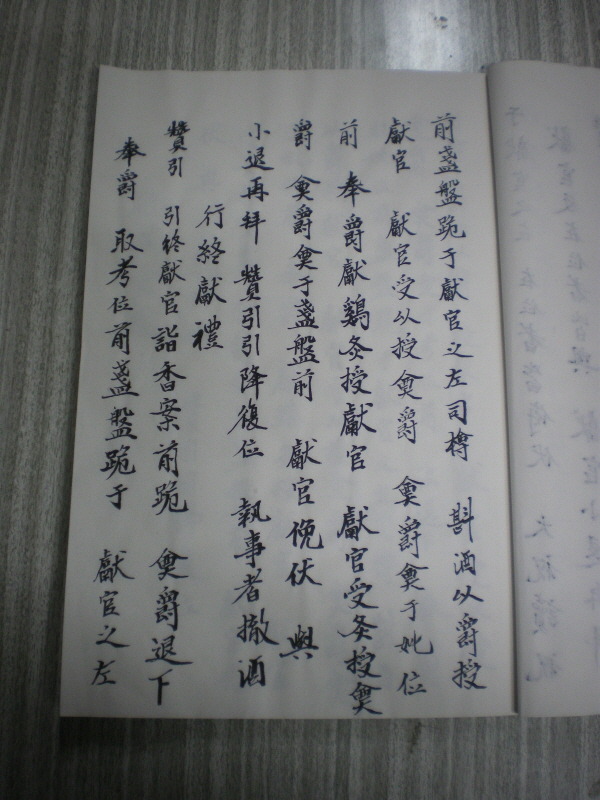 前盞盤跪于獻官之左司樽 斟酒以爵授
獻官 獻官受以授奠爵 奠爵奠于妣位
前 奉爵獻鷄灸授獻官 獻官受灸授奠
爵 奠爵奠于盞盤前 獻官俛伏 興
小退再拜 贊引引降復位 執事者撤酒
行終獻禮
贊引 引終獻官詣香案前跪 奠爵退下
奉爵 取考位前盞盤跪于 獻官之左